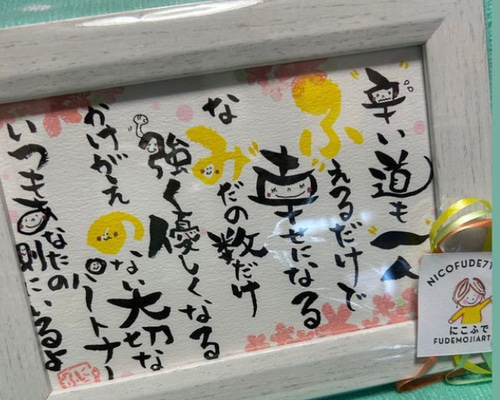 辛い道も一人
ふえるだけで
幸せになる
なみだの数だけ
強く優しくなる
かけがえのない大切な
パートナー
いつもあなたの
側にいるよ
NICOFUDE71
にこふで
FUDEMOJIART